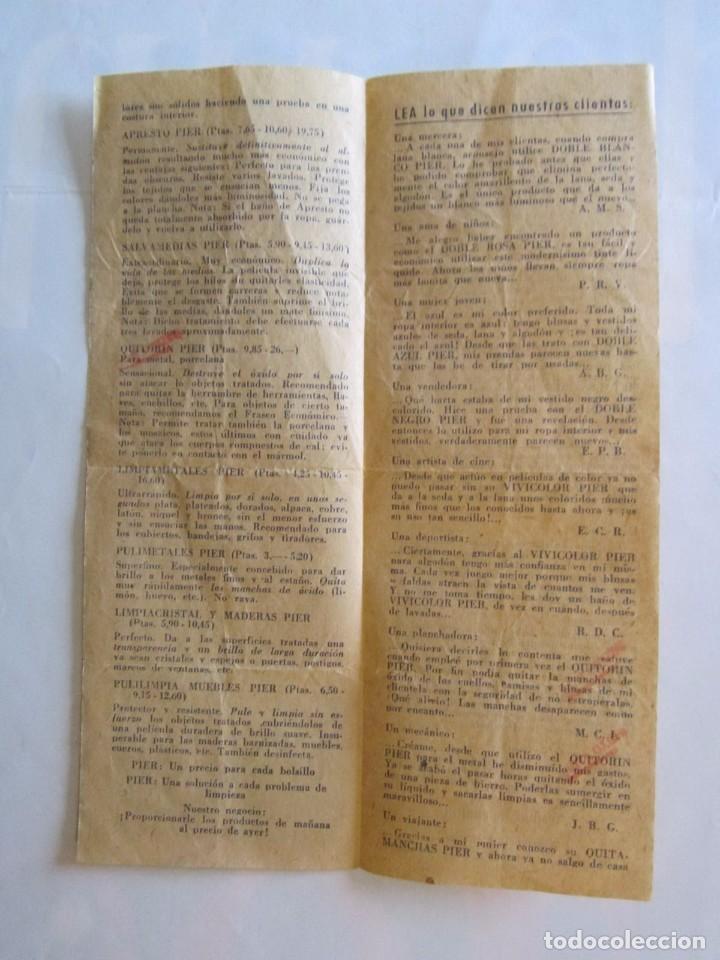 lores son sólidos haciendo una prueba en una
costura interior.
APRESTO PIER (Ptas. 7,65 - 10,60, 19,75)
Permanente. Sustituye definitivamente al al-
midón resultando mucho más económico con
las ventajas siguientes: Perfecto para las pren-
das obscuras. Resiste varios lavados. Protege
los tejidos que se ensucian menos. Fija los
colores dándoles más luminosidad. No se pega
a la plancha. Nota: Si el baño de Apresto no
queda totalmente absorbido por la ropa, guár-
delo y vuelva a utilizarlo.
SALVAMEDIAS PIER (Ptas. 5,90 - 9,45 - 13,60)
Extraordinario. Muy económico. Duplica la
vida de las medias. La película invisible que
deja, protege los hilos sin quitarles elasticidad.
Evita que se formen carreras y reduce nota-
blemente el desgaste. También suprime el bri-
llo de las medias, dándoles un mate finísimo.
Nota: Dicho tratamiento debe efectuarse cada
tres lavados aproximadamente.
QUITORIN PIER (Ptas. 9,85 - 26,—)
Para metal, porcelana
Sensacional. Destruye el óxido por sí solo
sin atacar lo objetos tratados. Recomendado
para quitar la herrumbre de herramientas, lla-
ves, cuchillos, etc. Para objetos de cierto ta-
maño, recomendamos el Frasco Económico.
Nota: Permite tratar también la porcelana y
los mosaicos, estos últimos con cuidado ya
que ataca los cuerpos compuestos de cal; evi-
te ponerlo en contacto con el mármol.
LIMPIAMETALES PIER (Ptas. 4,25 - 10,45 -
16,60)
Ultrarrápido. Limpia por sí solo, en unos se-
gundos plata, plateados, dorados, alpaca, cobre,
latón, níquel y bronce, sin el menor esfuerzo
y sin ensuciar las manos. Recomendado para
los cubiertos, bandejas, grifos y tiradores.
PULIMETALES PIER (Ptas. 3,— - 5,20)
Superfino. Especialmente concebido para dar
brillo a los metales finos y al estaño. Quita
muy rápidamente las manchas de ácido (li-
món, huevo, etc.). No raya.
LIMPIACRISTAL Y MADERAS PIER
(Ptas. 5,90 - 10,45)
Perfecto. Da a las superficies tratadas una
transparencia y un brillo de larga duración
ya sean cristales y espejos o puertas, postigos,
marcos de ventanas, etc.
PULILIMPIA MUEBLES PIER (Ptas. 6,50 -
9,15 - 12,60)
Protector y resistente. Pule y limpia sin es-
fuerzo los objetos tratados cubriéndolos de
una película duradera de brillo suave. Insu-
perable para las maderas barnizadas, muebles,
cueros, plásticos, etc. También desinfecta.
PIER: Un precio para cada bolsillo
PIER: Una solución a cada problema de
limpieza
Nuestro negocio:
¡Proporcionarle los productos de mañana
al precio de ayer!
LEA lo que dicen nuestros clientes:
Una mercera:
... A cada una de mis clientas, cuando compra
lana blanca, aconsejo utilice DOBLE BLAN-
CO PIER. Lo he probado antes que ellas y
he podido comprobar que elimina perfecta-
mente el color amarillento de la lana, seda y
algodón. Es el único producto que da a los
tejidos un blanco más luminoso que el nuevo...
A. M. S.
Una ama de niños:
... Me alegro haber encontrado un producto
como el DOBLE ROSA PIER, es tan fácil y
económico utilizar este modernísimo tinte lí-
quido. Ahora los niños llevan siempre ropa
más bonita que nueva...
P. R. V.
Una mujer joven:
... El azul es mi color preferido. Toda mi
ropa interior es azul; tengo blusas y vestidos
azules de seda, lana y algodón y ¡es tan deli-
cado el azul! Desde que las trato con DOBLE
AZUL PIER, mis prendas parecen nuevas has-
ta que las he de tirar por usadas...
A. B. G.
Una vendedora:
... Qué harta estaba de mi vestido negro des-
colorido. Hice una prueba con el DOBLE
NEGRO PIER y fue una revelación. Desde
entonces lo utilizo para mi ropa interior y mis
vestidos, verdaderamente parecen nuevos...
E. P. B.
Una artista de cine:
... Desde que actúo en películas de color ya no
puedo pasar sin su VIVICOLOR PIER que
da a la seda y a la lana unos coloridos mucho
más finos que los conocidos hasta ahora y ¡es
su uso tan sencillo!...
E. C. R.
Una deportista:
... Ciertamente, gracias al VIVICOLOR PIER
para algodón tengo más confianza en mi mis-
ma. Cada vez juego mejor porque mis blusas
y faldas atraen la vista de cuantos me ven.
Y no me toma tiempo, les doy un baño de
VIVICOLOR PIER, de vez en cuando, después
de lavadas...
R. D. C.
Una planchadora:
... Quisiera decirles lo contenta que estuve
cuando empleé por primera vez el QUITORIN
PIER. Por fin podía quitar las manchas de
óxido de los cuellos, camisas y blusas de mi
clientela con la seguridad de no estropearlas.
¡Qué alivio! Las manchas desaparecen como
por encanto...
M. C. L.
Un mecánico:
... Créame, desde que utilizo el QUITORIN
PIER para el metal he disminuido mis gastos.
Ya se acabó el pasar horas quitando el óxido
de una pieza de hierro. Poderlas sumergir en
su líquido y sacarlas limpias es sencillamente
maravilloso...
J. B. G.
Un viajante:
... Gracias a mi mujer conozco su QUITA-
MANCHAS PIER y ahora ya no salgo de casa
todocoleccion